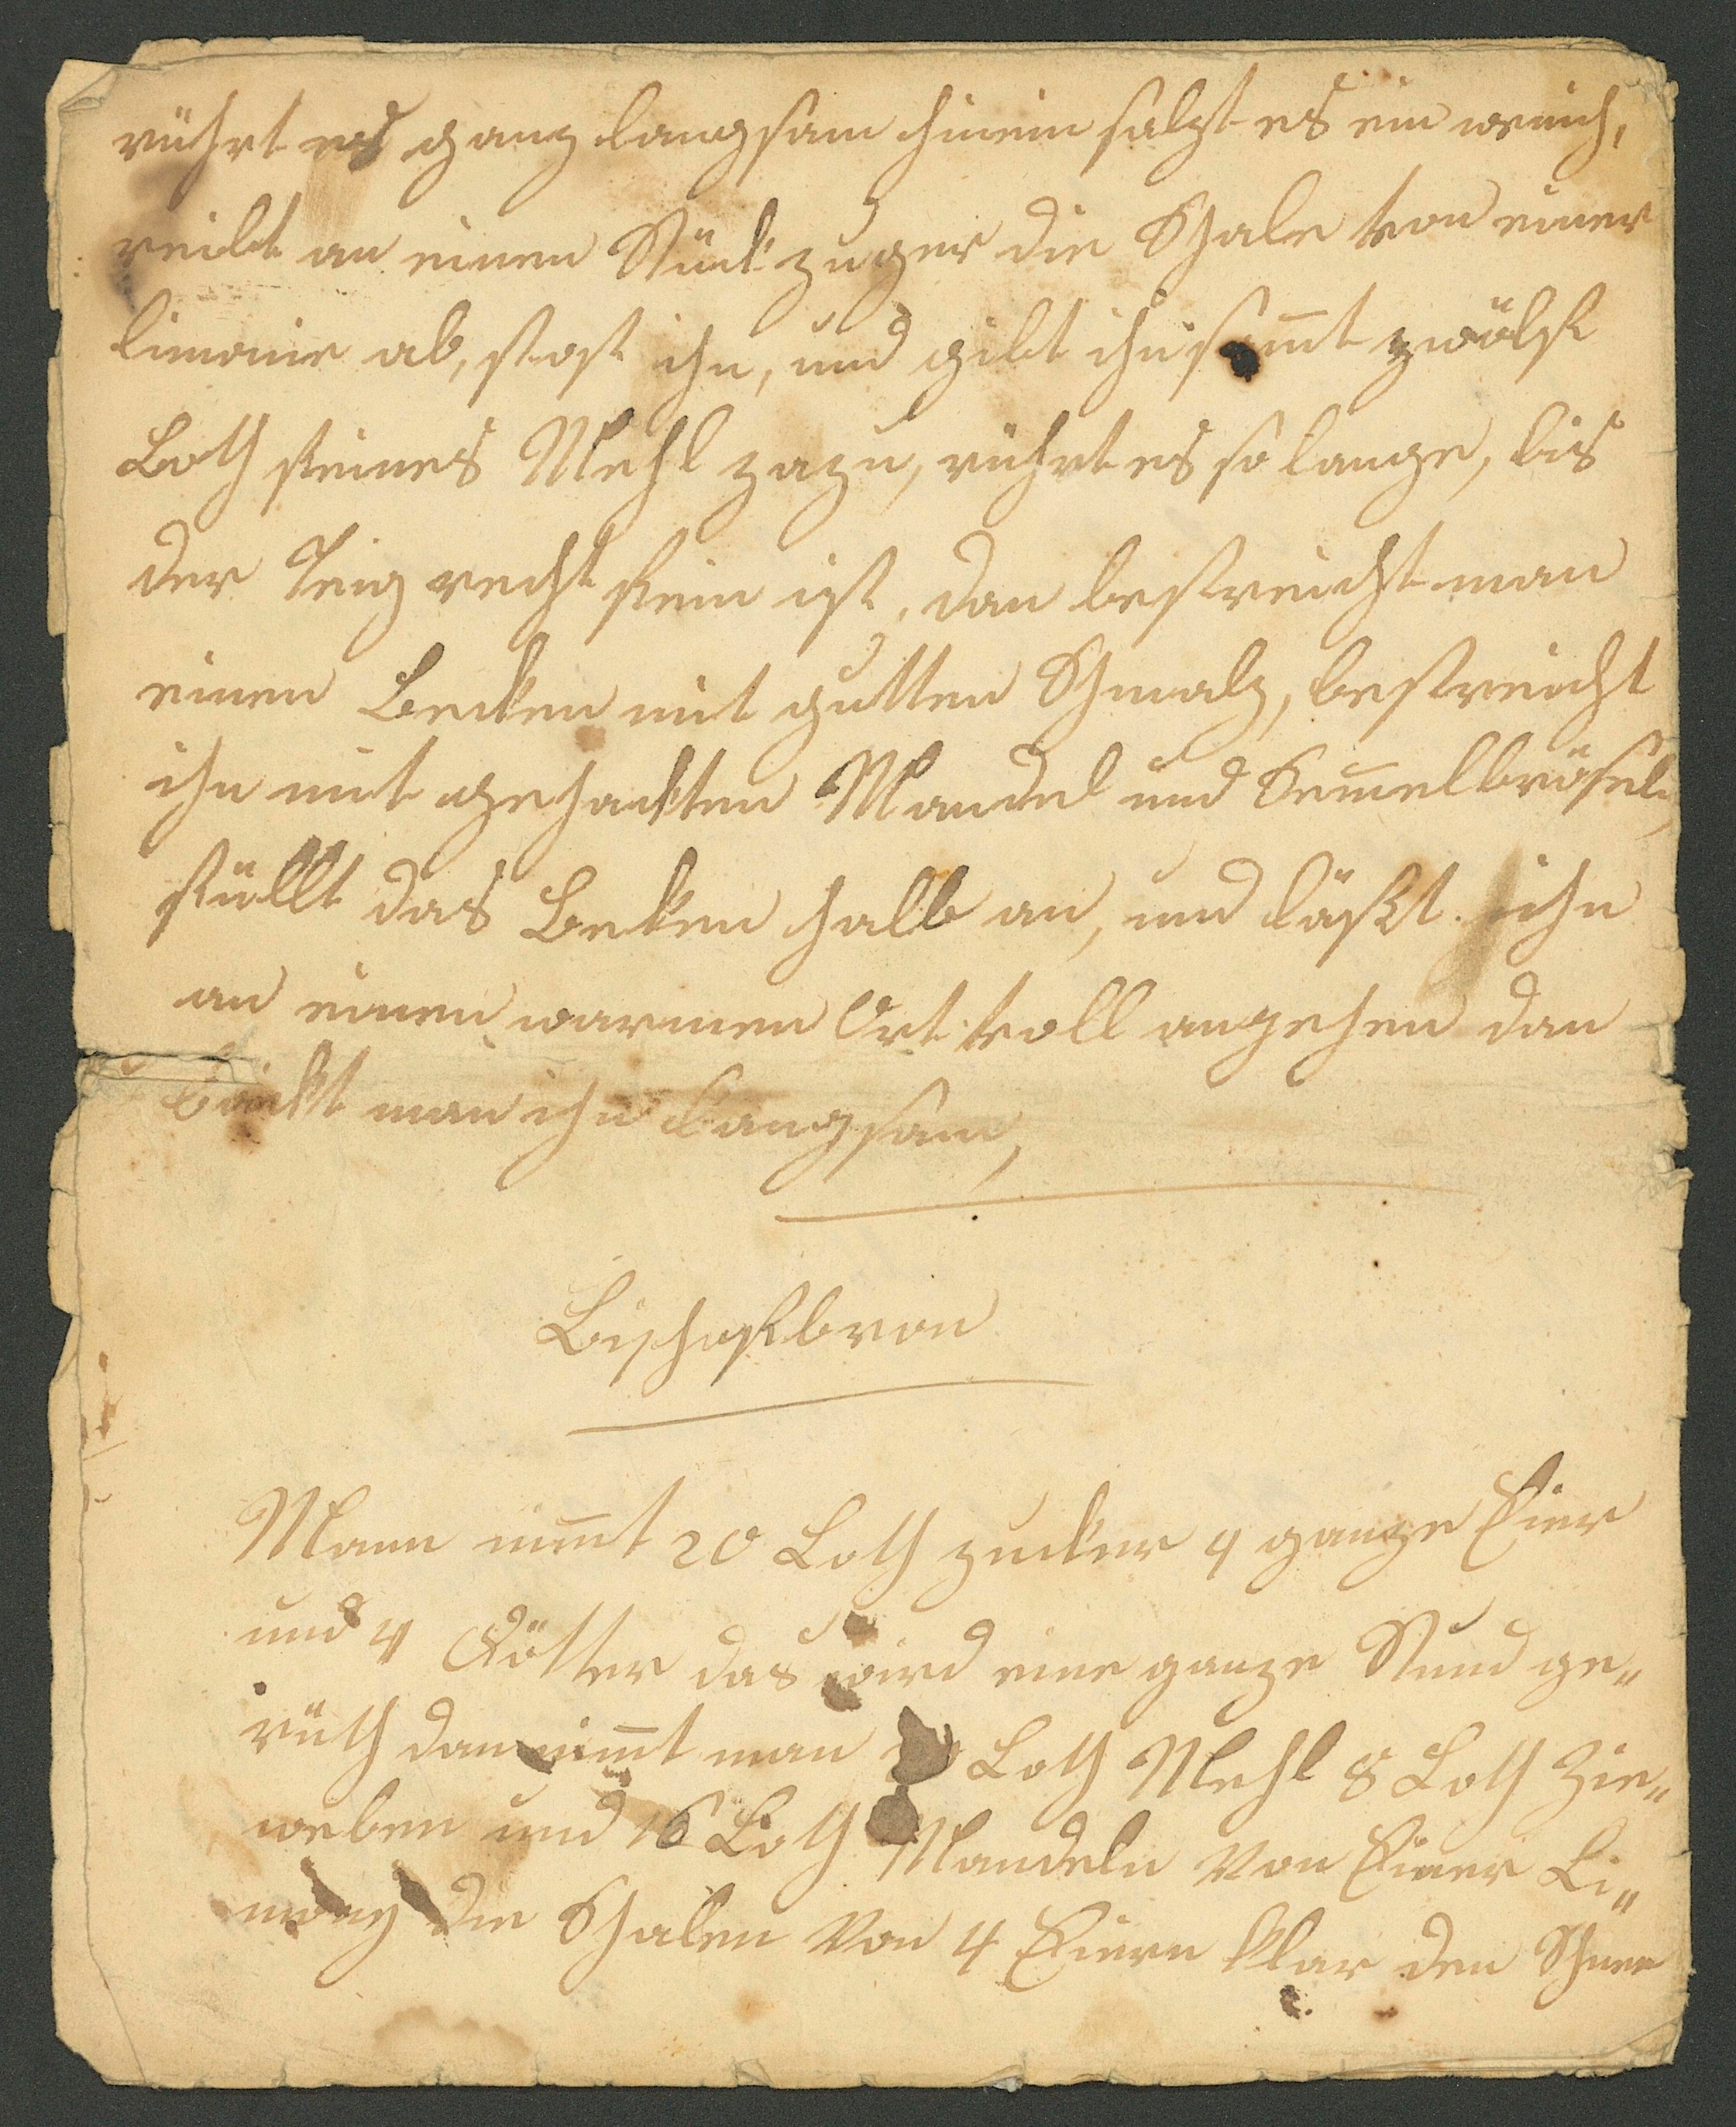 rührt es ganz langsam hinein salzt es ein wenich,
reibt an einen Stück zuger die Schale von einer
limonie ab, stost ihn, und gibt ihn sam̅t zwölf
Loth feines Mehl zazu, rührt es so lange, bis
der Teig recht fein ist, dan bestreicht man
einen Becken mit gutten Schmalz, bestreicht
ihn mit gehackten Mandel und Sem̅elbrösel,
füllt das Becken halb an, und läßt ihn
an einen warmen Ort voll angehen dan
bäckt man ihn langsam,
Bischofbron
Mann nim̅t 20 Loth zucker 4 ganze Eier
und 4 Dötter das wird eine ganze Stund ge„
rüth dan nim̅t man Loth Mehl 8 Loth Zie„
weben und 16 Loth Mandeln Von Einer Li„
mony die Schalen Von 4 Eiern klar den Schnee